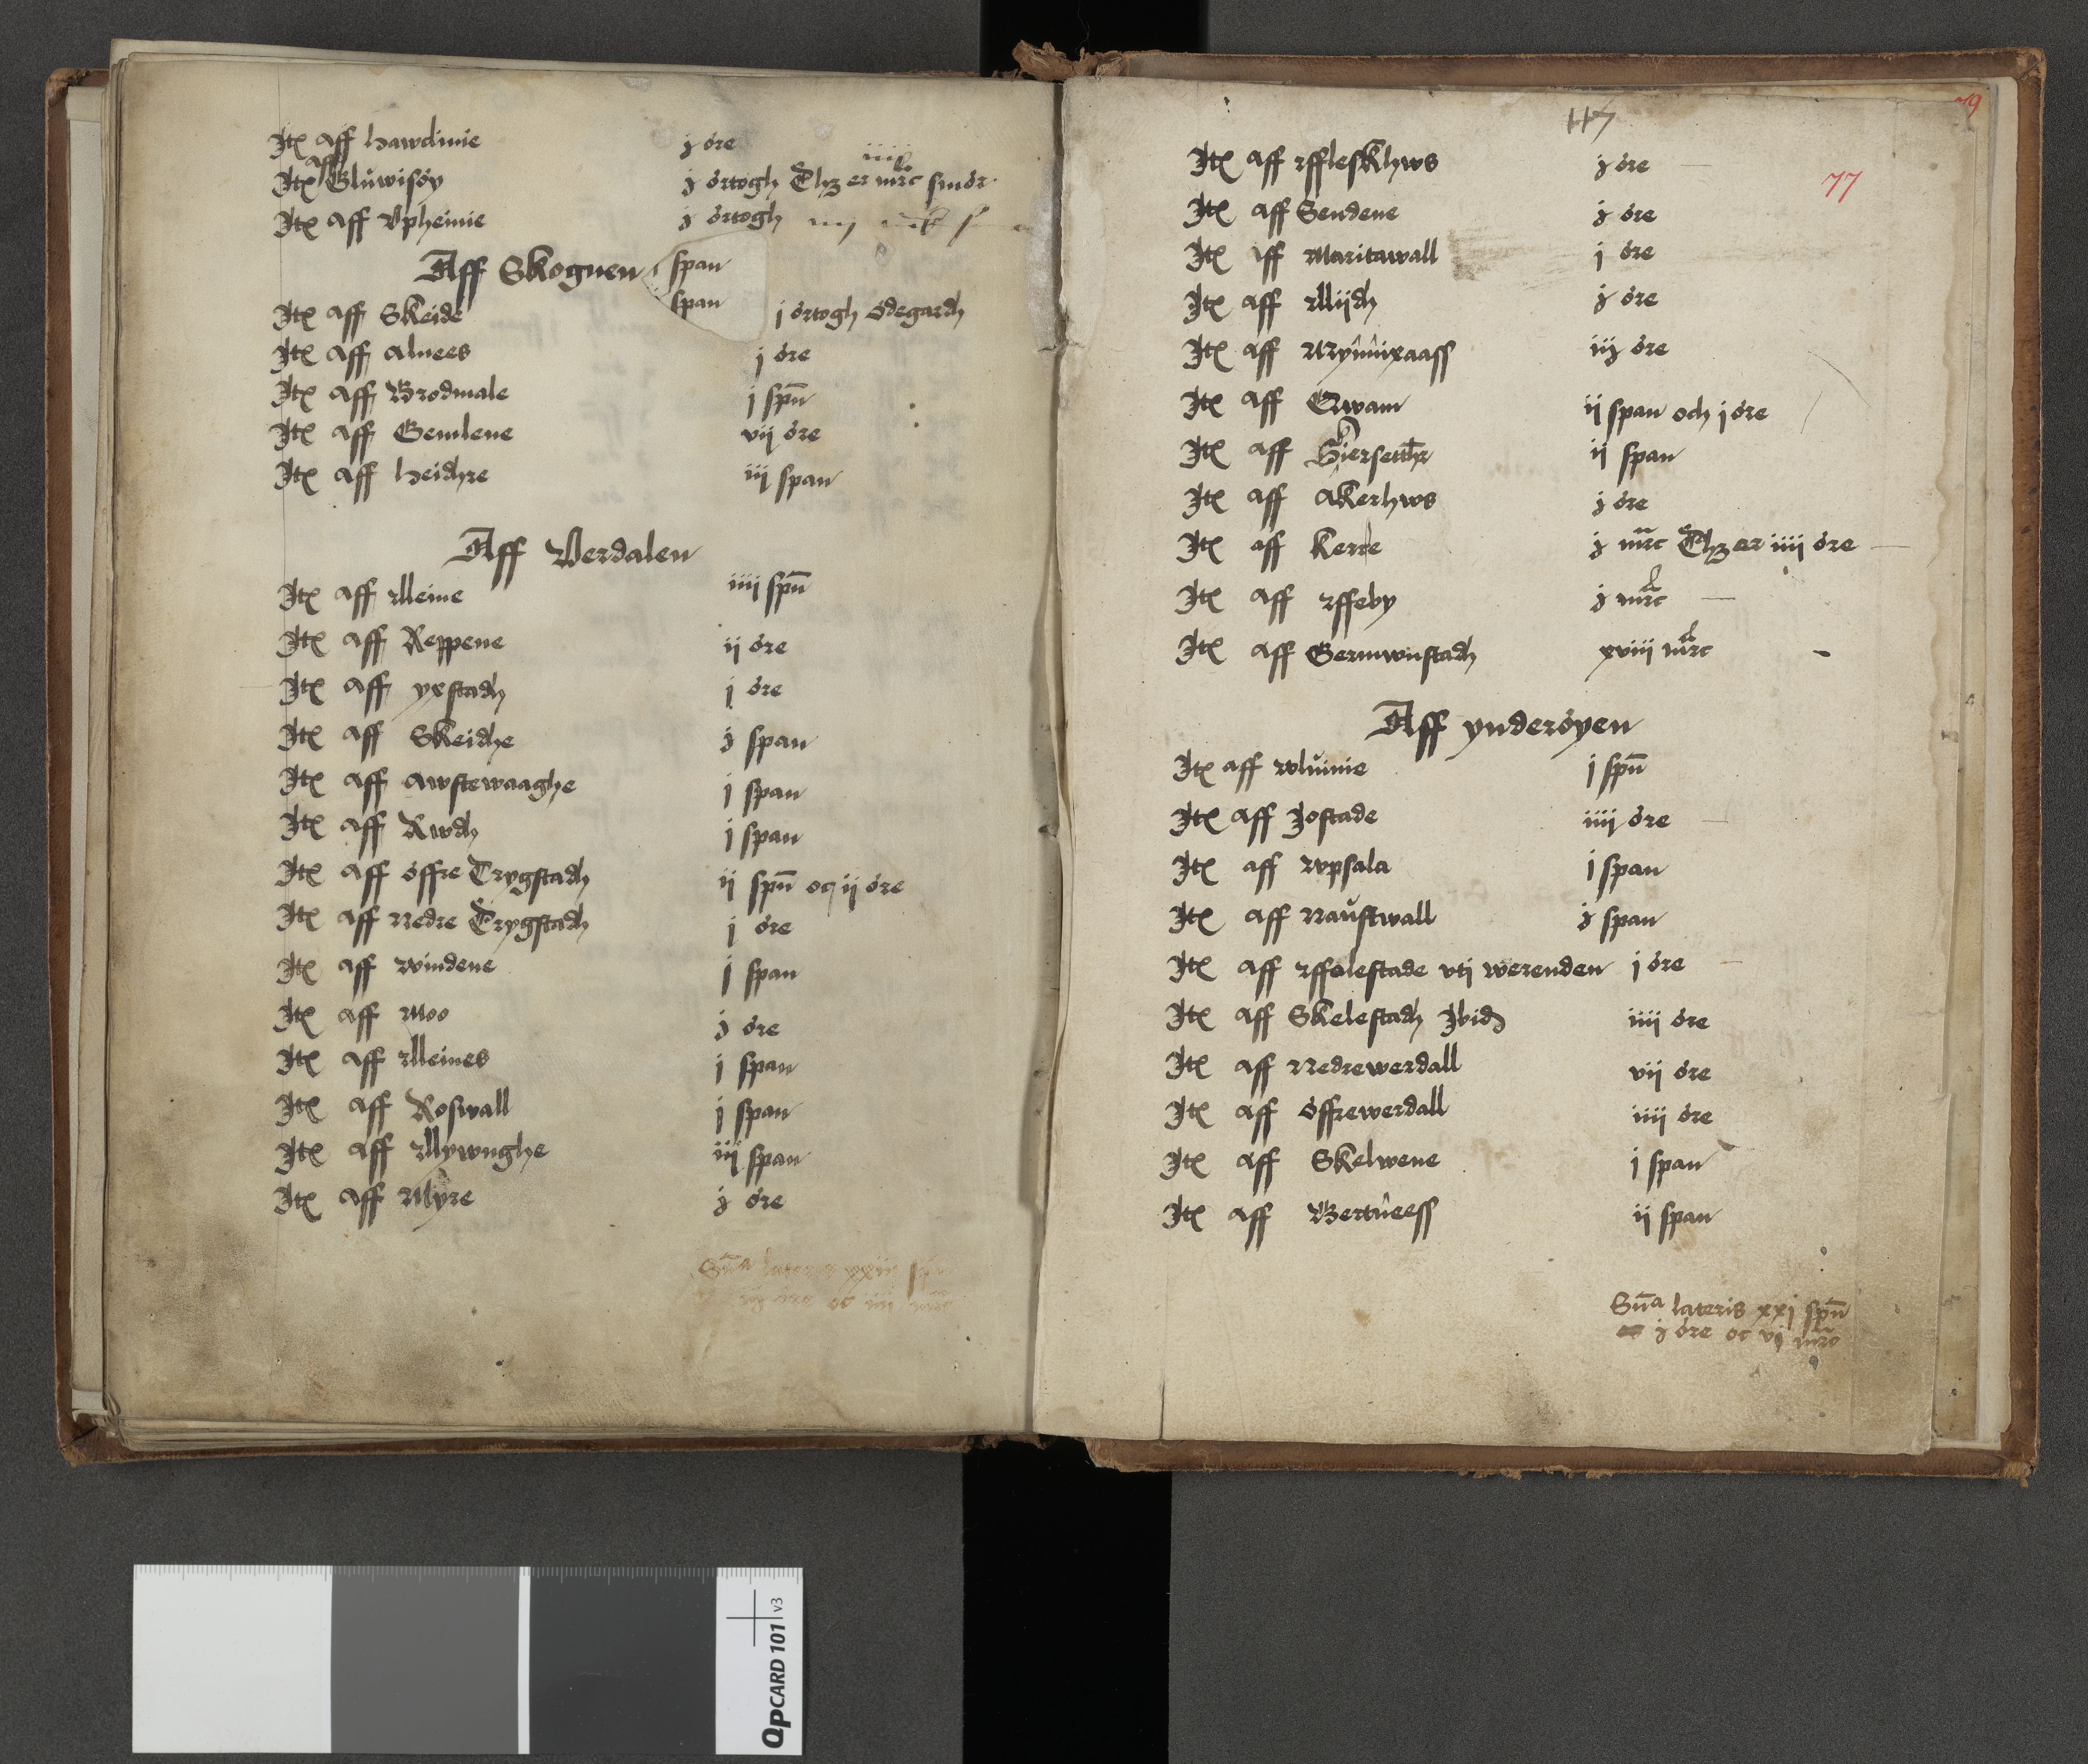 Itē aff hawdinie j óre
Itē aff Glúwisóy ɉ órtogh Thz er iiij mrc smór
Itē aff Vpheimie ɉ órtogh
Aff Skognen
span
Itē aff Skeide span j órtogh ódegardh
Itē aff alnees j óre
Itē aff Brodmale j spn̄
Itē aff Gemlene vij óre
Itē aff heidhre iij span
Aff Verdalen
Itē aff lleine iiij spn̄
Itē aff Reppene ij óre
Itē aff yxstadh j óre
Itē aff Skeidhe ɉ span
Itē aff awstewaaghe j span
Itē aff Rwdh j span
Itē aff óffre Trygstadh ij spn̄ oc ij óre
Itē aff nedre Trygstadh j óre
Itē aff windene j span
Itē aff Moo ɉ óre
Itē aff lleines j span
Itē aff Roswall j span
Itē aff llywnghe iij span
Itē aff Myre ɉ óre
Sm̄a lateris xxiii spn̄
óre oc iiii mrc
117
79
77
Itē aff fflesklhws ɉ óre
Itē aff Sendene ɉ óre
Itē aff Maritawall j óre
Itē aff llijdh ɉ óre
Itē aff Mynnixaass iij óre
Itē aff Qwam ij span och j óre
Itē aff Biersetthr ij span
Itē aff akerhws ɉ óre
Itē aff kerre ɉ mrc Thz er iiij óre
Itē aff ffeby ɉ mrc
Itē aff Germwnstadh xviij mrc
Aff ynderóyen
Itē aff wluinie j spn̄
Itē aff Jostade iiij óre
Itē aff wpsala j span
Itē aff naustwall ɉ span
Itē aff ffalestade vti werenden j óre
Itē aff Skelestadh Ibid iiij óre
Itē aff nedrewerdall vij óre
Itē aff óffrewerdall iiij óre
Itē aff Skelwene j span
Itē aff Bertneess ij span
Sm̄a lateris xxj spn̄
ɉ óre oc vj mrc
QPCARD 101 v3